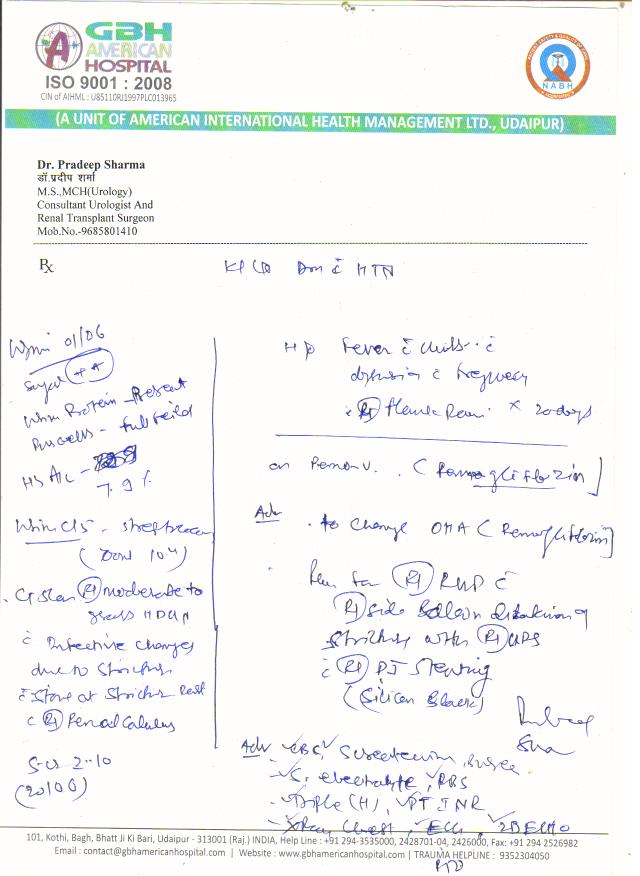 GBH
AMERICAN
HOSPITAL
ISO 9001 : 2008
CIN of AIHML : U85110RJ1997PLC013965
NABH
(A UNIT OF AMERICAN INTERNATIONAL HEALTH MANAGEMENT LTD., UDAIPUR)
Dr. Pradeep Sharma
डॉ.प्रदीप शर्मा
M.S.,MCH(Urology)
Consultant Urologist And
Renal Transplant Surgeon
Mob.No.-9685801410
Rx
K/C/O DM c HTN
Urine 01/06
Sugar ++
Urine Protein - Present
Puscells - full feild
HbA1c -
7.9 %
Urine C/S -
CT Scan Rt moderate to
gross HDUN
c Infective changes
due to Stricture
c Stone at Stricture
c Rt Renal calculus
S-Cr 2.10
(20/06)
H/O Fever c chills c
dysuria c frequency
c Rt Flank Pain × 20 days
on Remo V. (Remogliflozin)
Adv
to change OHA (Remogliflozin)
Plan for Rt RGP c
Rt side Balloon dilatation of
stricture with Rt URS
c Rt DJ Stenting
(Silicon Black)
Adv CBC,
S. electrolyte, RBS
Triple (H), PT INR
X-Ray Chest, ECG, 2D ECHO
101, Kothi, Bagh, Bhatt Ji Ki Bari, Udaipur - 313001 (Raj.) INDIA, Help Line : +91 294-3535000, 2428701-04, 2426000, Fax: +91 294 2526982
Email : contact@gbhamericanhospital.com | Website : www.gbhamericanhospital.com | TRAUMA HELPLINE : 9352304050
PTO